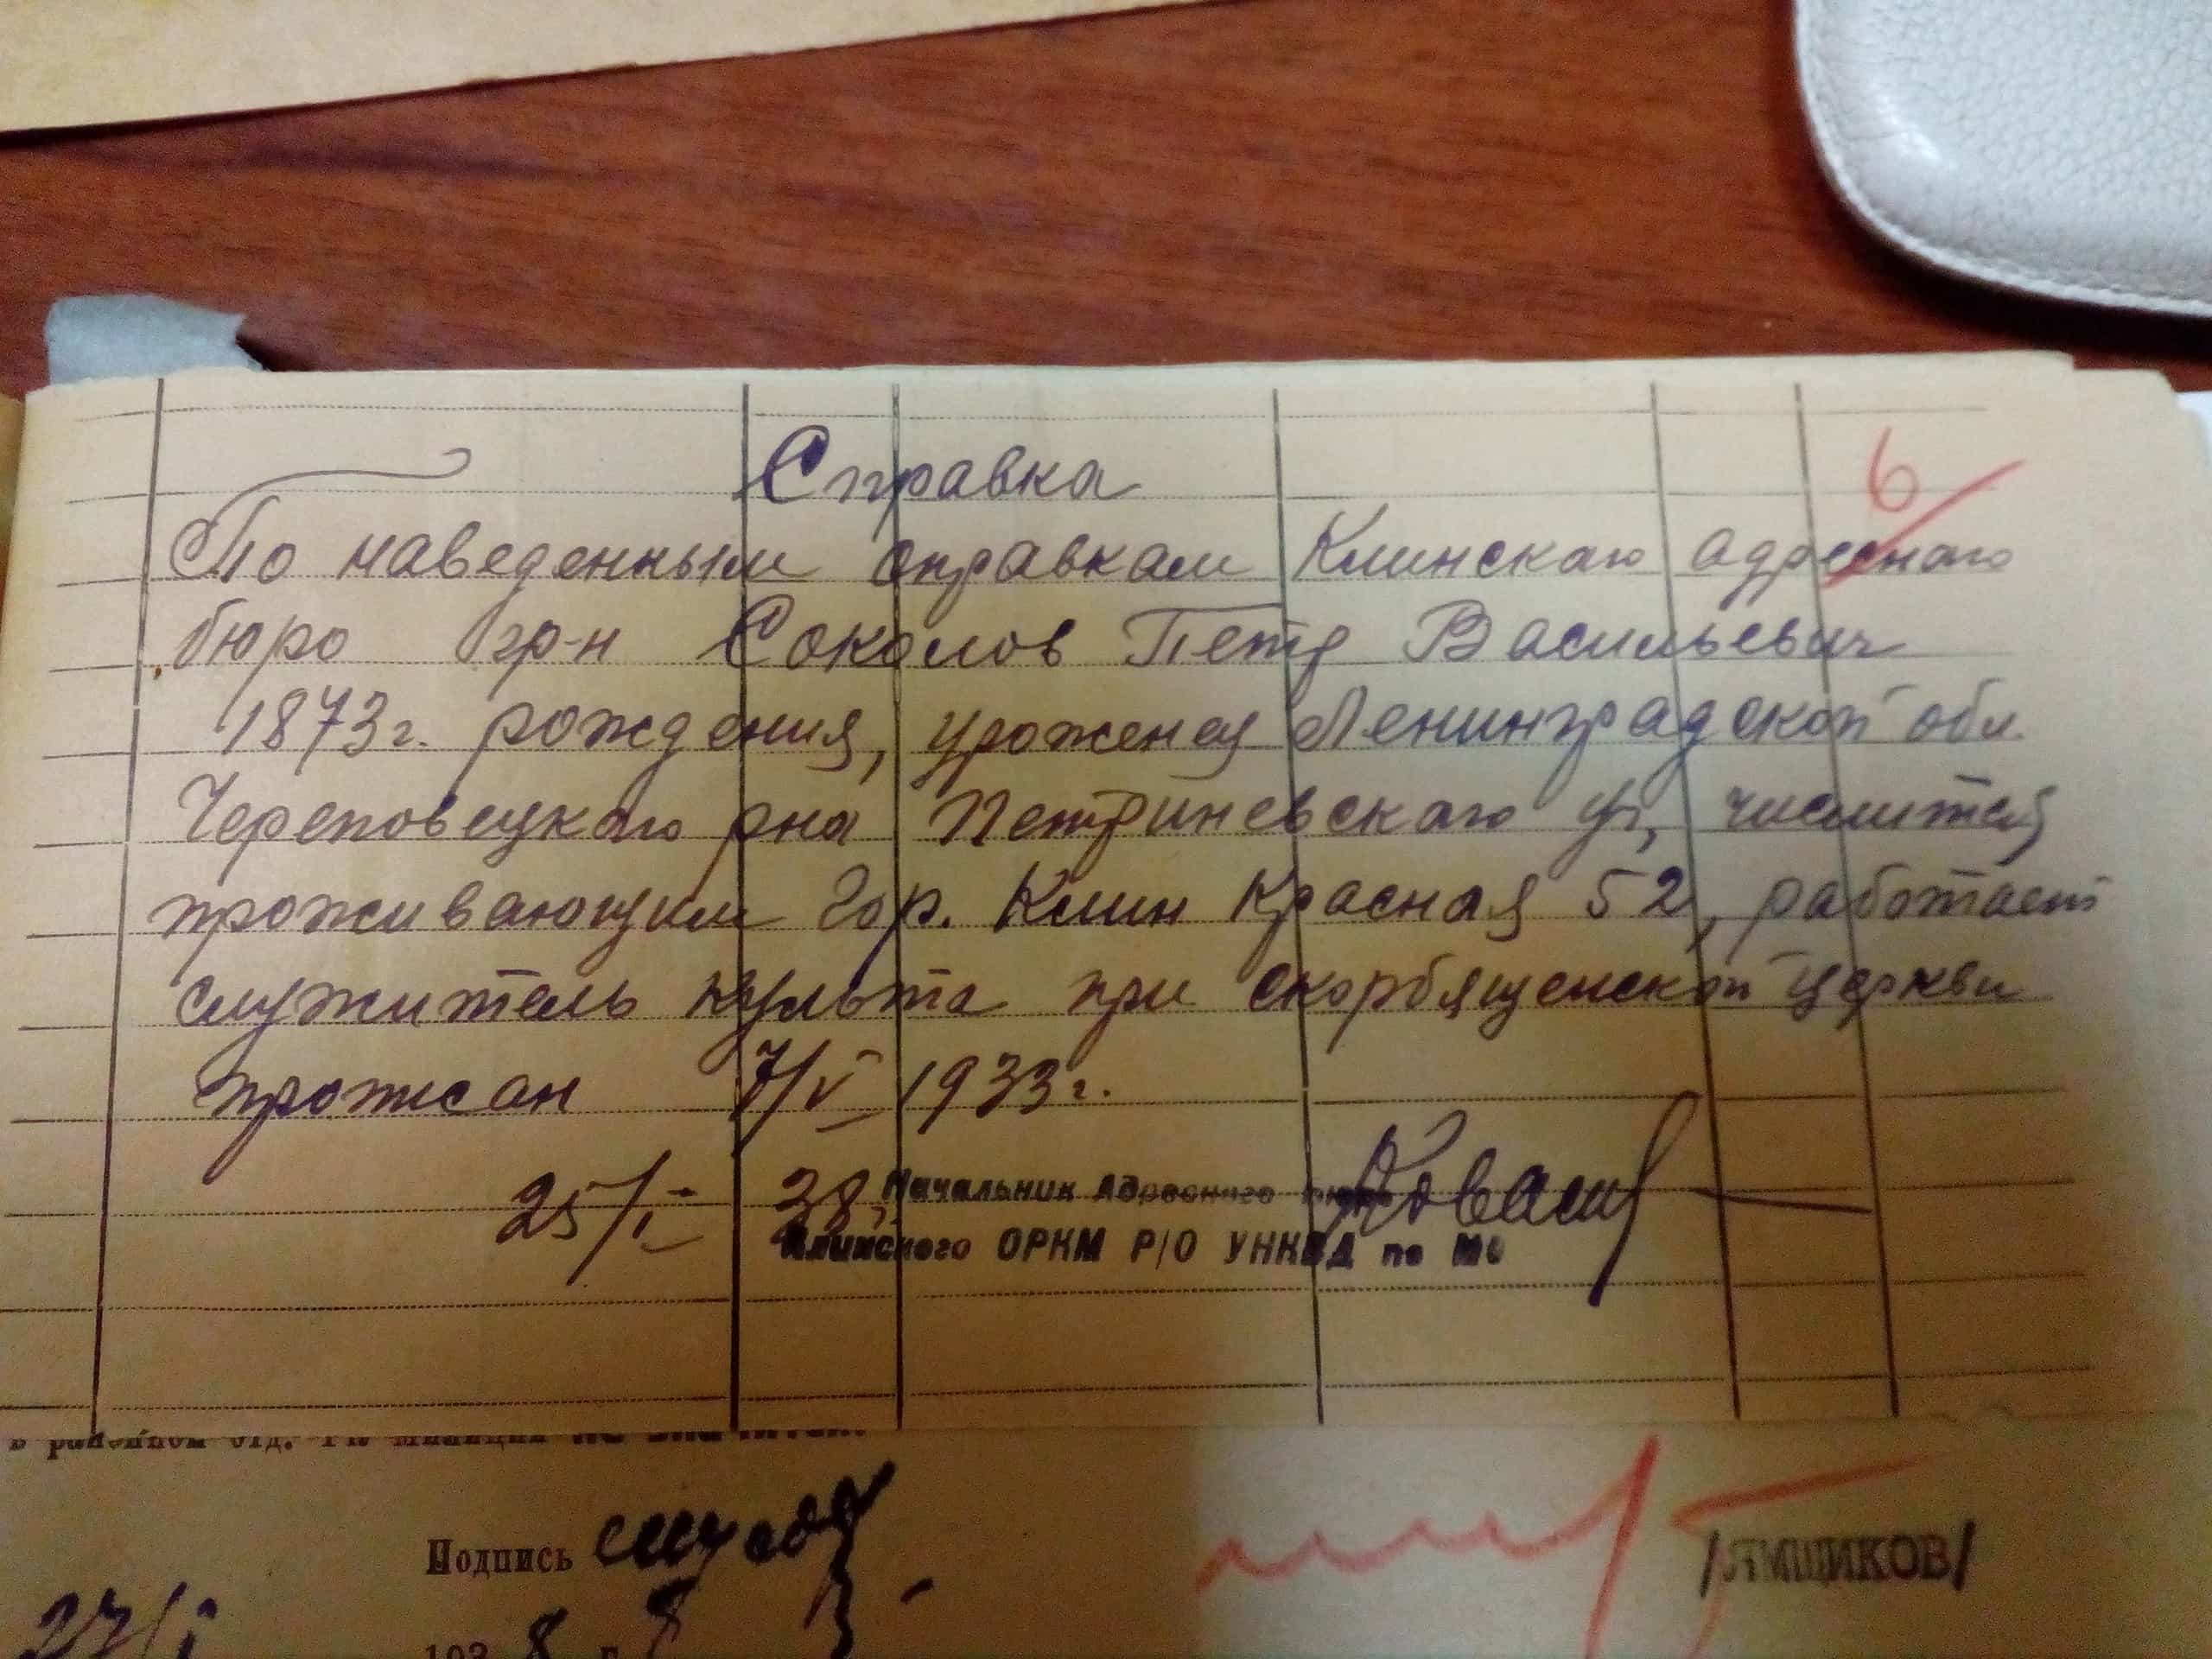 6
Справка
По наведенным справкам Клинского адресного
бюро гр-н Соколов Петр Васильевич
1873г. рождения, уроженец Ленинградской обл.
Череповецкого рна Петриневского числится
проживающим Гор. Клин Красная 52, работает
служитель культа при скорбященской церкви
прописан 7/V 1933г.
25/I 38, Начальник Адресного бюро
Клинского ОРКМ Р/О УНКВД по МО
в районном отд.
Подпись
/ЯМЩИКОВ/
27/I 1938 г.